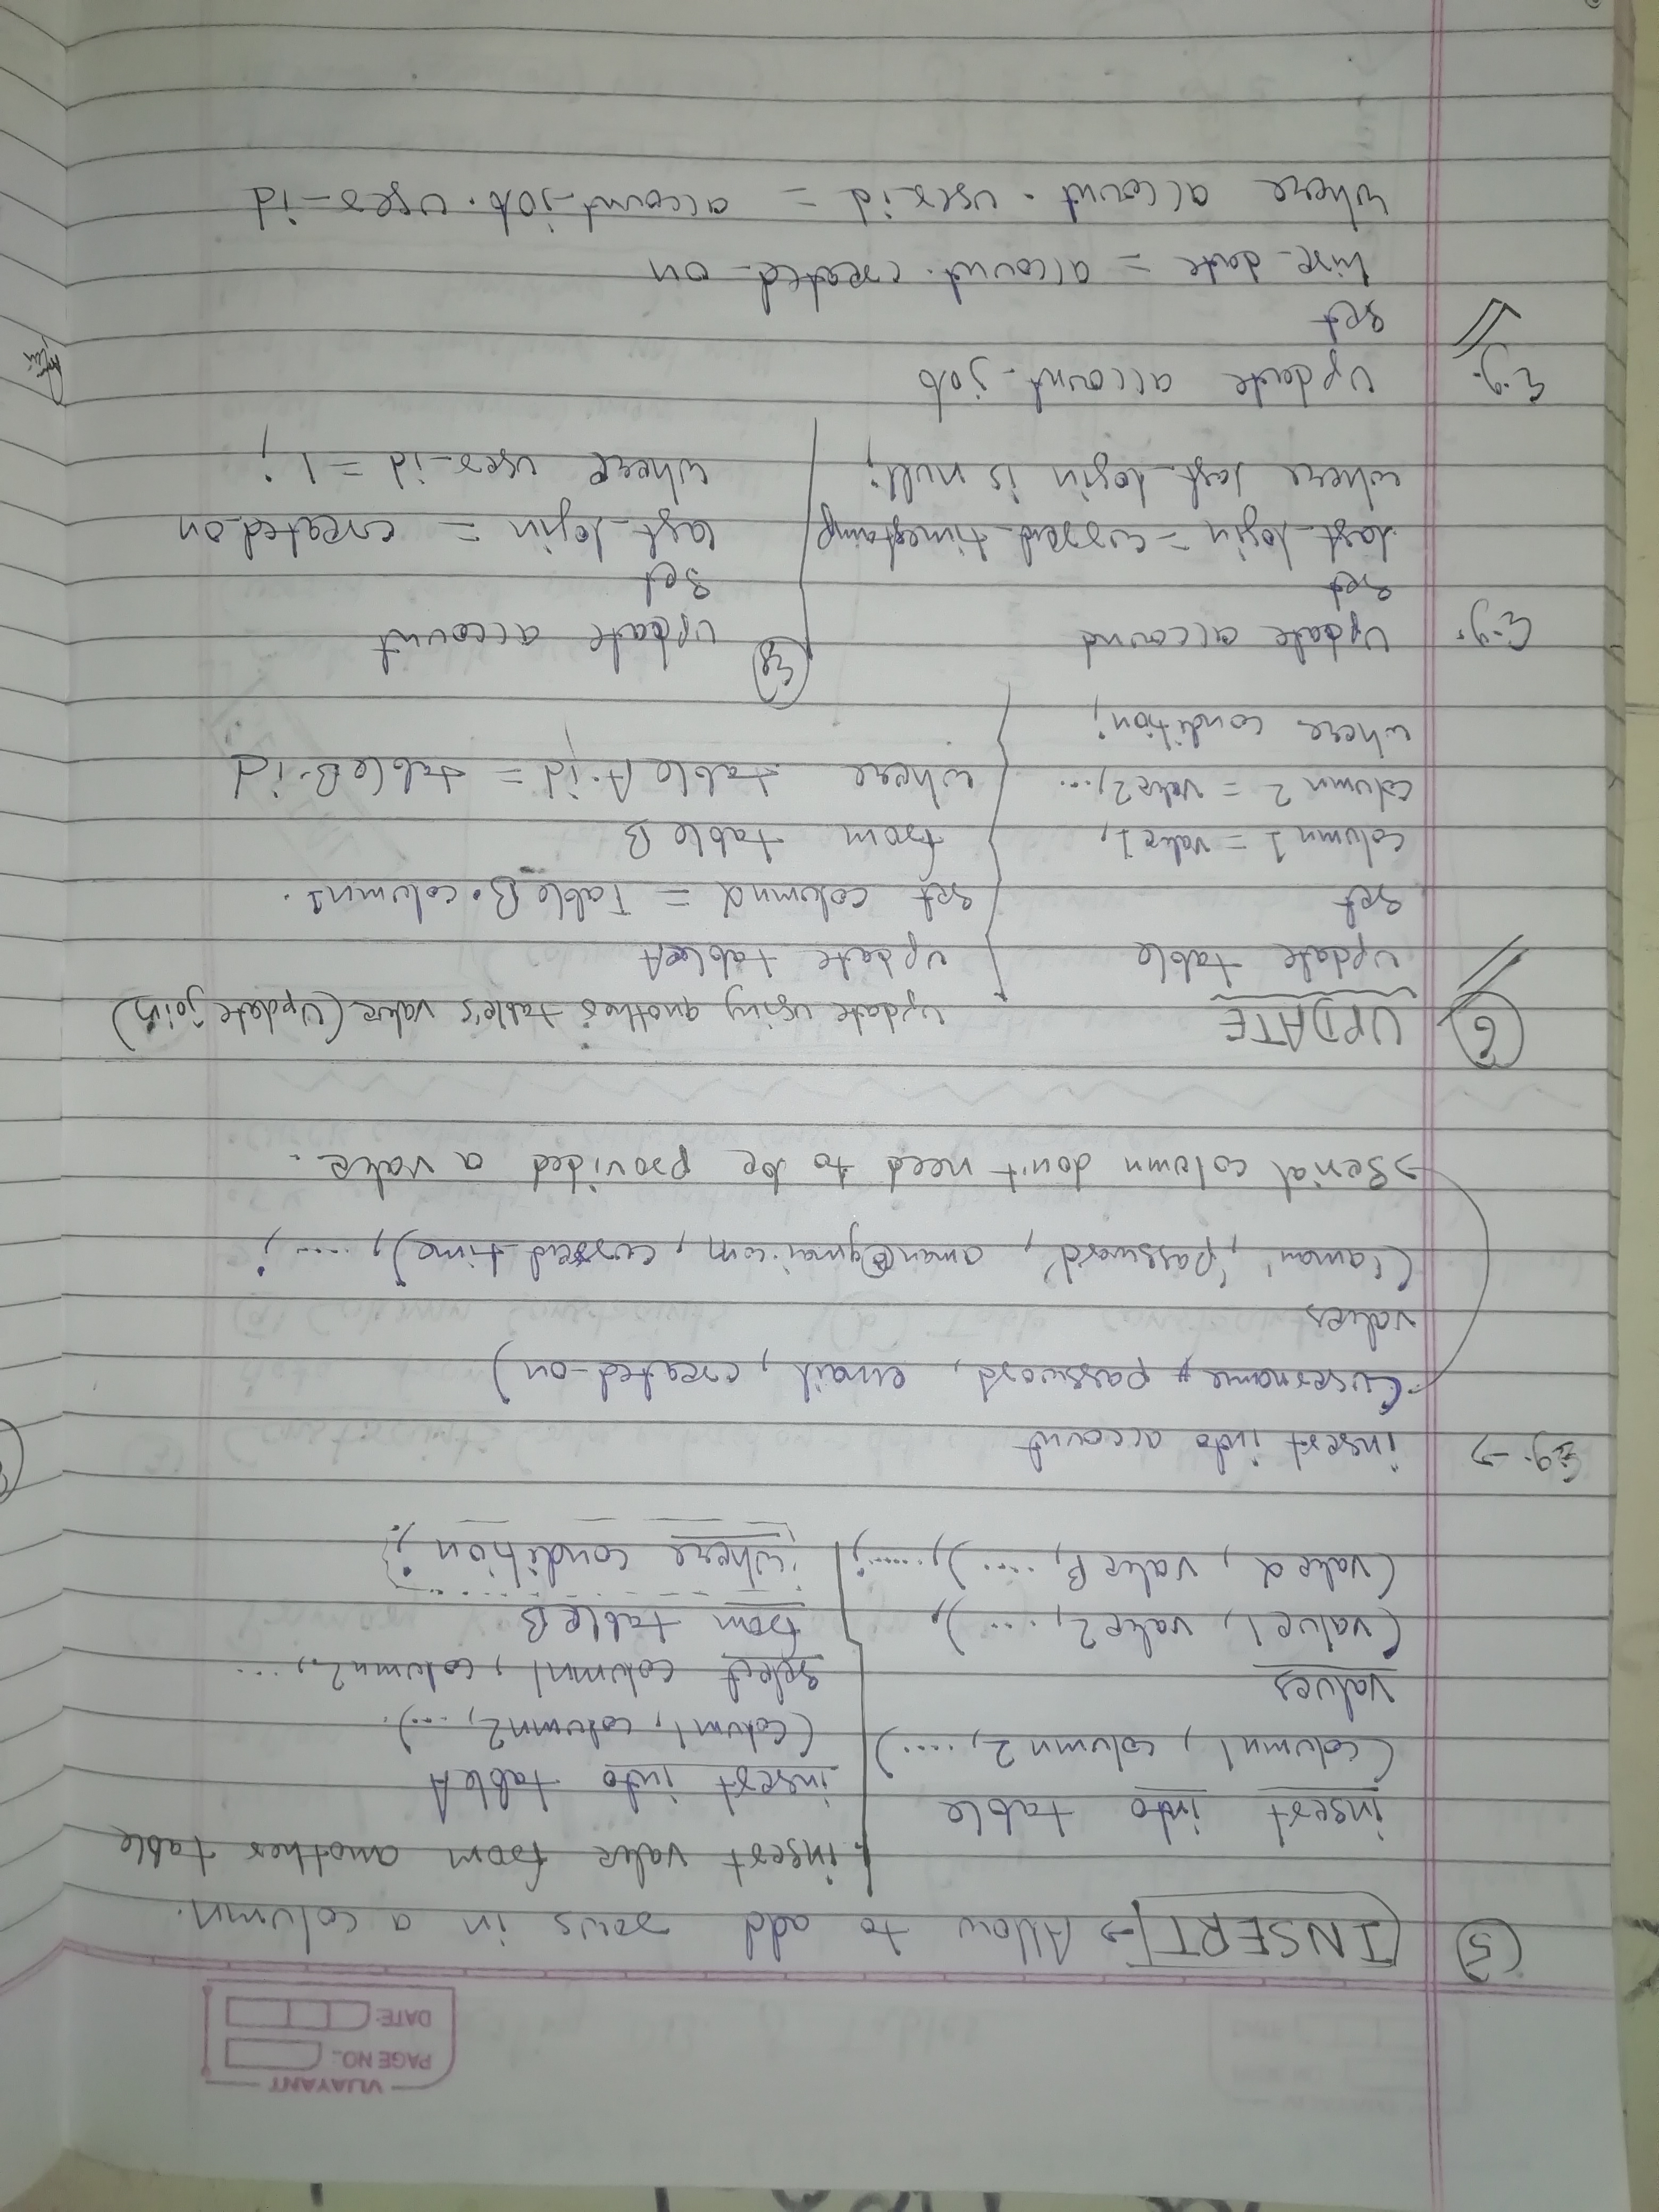 VIJAYANT
PAGE NO.:
DATE:
(5) INSERT → Allow to add rows in a column.
insert into table
(column1, column2, ....)
values
(value1, value2, ....),
(value α, value β, ....), .....;
insert value from another table
insert into tableA
(colum1, column2, ...).
select column1, column2., ...
from tableB
where condition;
E.g. → insert into account
(username, password, email, created_on)
values
('aman', 'password', aman@gmai.com, current_time), ....;
→ Serial column don't need to be provided a value.
(6) UPDATE
update table
set
column 1 = value 1,
column 2 = value 2,...
where condition;
update using another table's value (Update join)
update tableA
set column α = Table B.column1.
from table B
where tableA.id = tableB.id
E.g. Update account
set
last_login = current_timestamp
where last_login is null;
Eg update account
set
last_login = created_on
where user_id = 1;
E.g. update account_job
set
hire_date = account.created_on
where account.userid = account_job.user_id